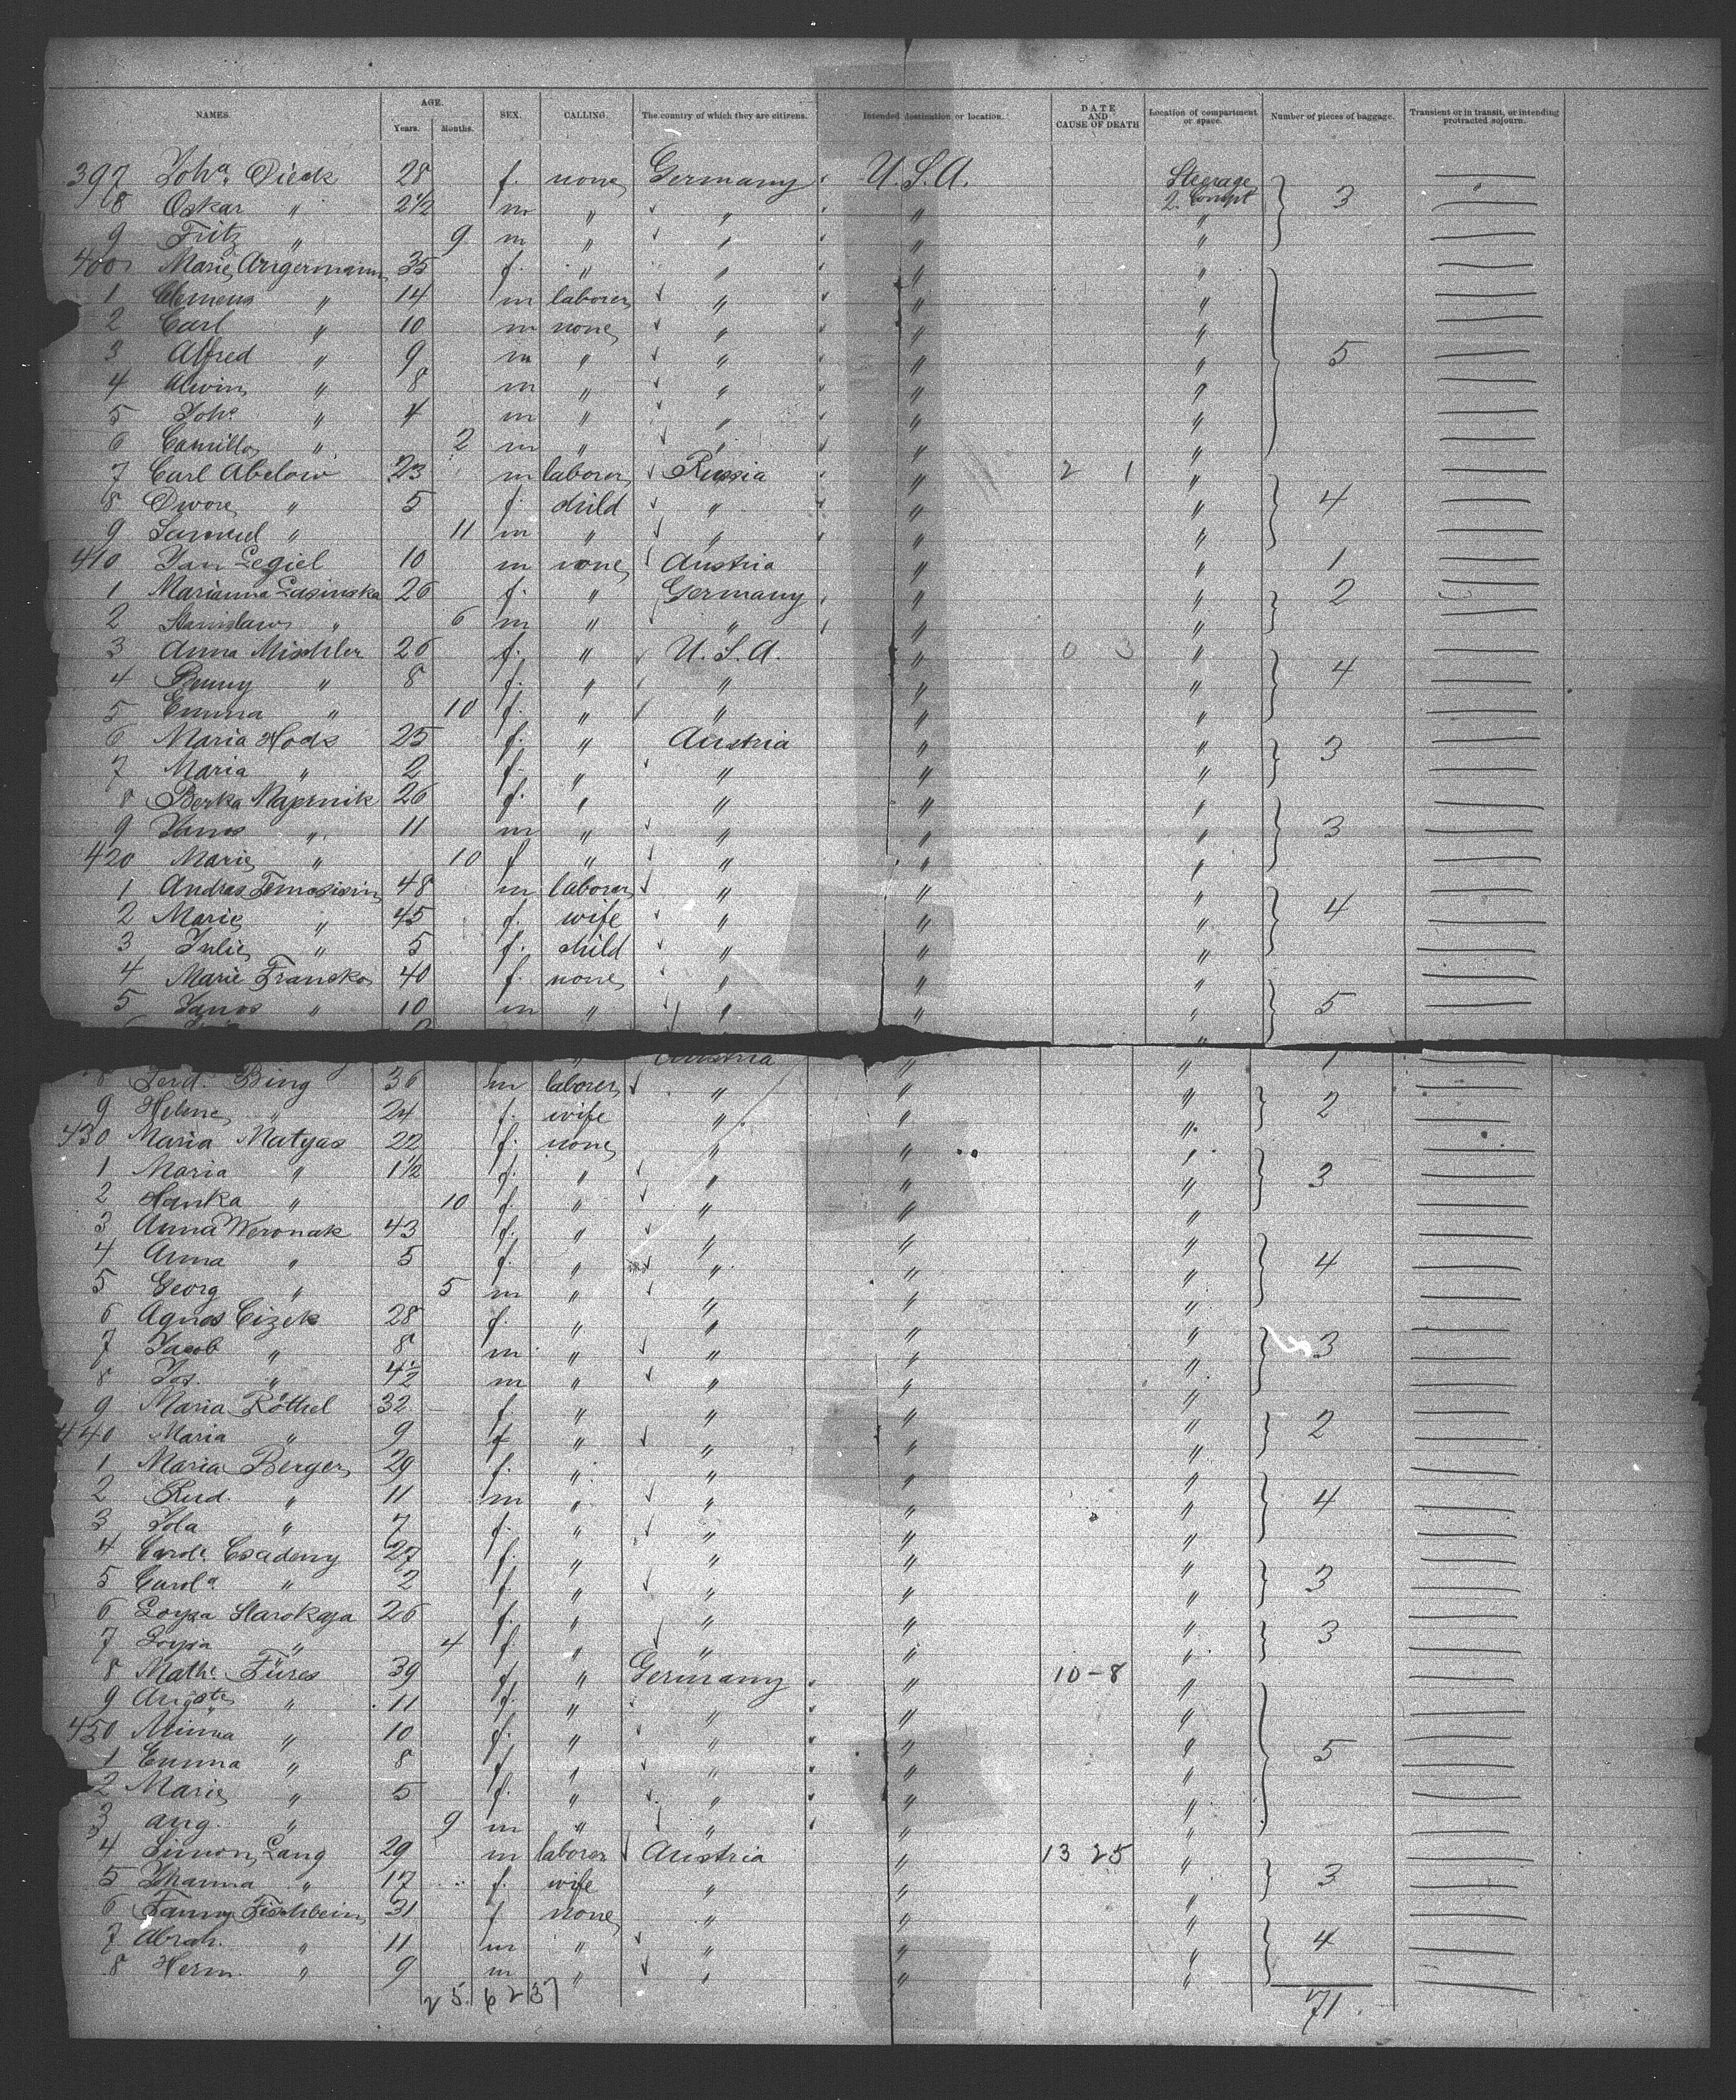 NAMES. AGE. Years. Months. SEX. CALLING. The country of which they are citizens. Intended destination or location. DATE AND CAUSE OF DEATH Location of compartment or space. Number of pieces of baggage. Transient or in transit, or intending protracted sojourn.
397 Joha. Dieck 28 f. none Germany U.S.A. Steerage 2. Compt 3
8 Oskar " 2½ m " " " "
9 Fritz " 9 m " " " "
400 Marie Angermann 35 f. " " " "
1 Clemens " 14 m laborer " " "
2 Carl " 10 m none " " "
3 Alfred " 9 m " " " " 5
4 Alwin " 8 m " " " "
5 Johs " 4 m " " " "
6 Camillo " 2 m " " " "
7 Carl Abelow 23 m laborer Russia " 2 1 "
8 Dwore " 5 f. child " " " 4
9 Samuel " 11 m " " " "
410 Jan Legiel 10 m none Austria " " 1
1 Marianna Lasinska 26 f. " Germany " " 2
2 Stanislaw " 6 m " " " "
3 Anna Mischler 26 f. " U.S.A. " 0 3 "
4 " 8 f. " " " " 4
5 Emma " 10 f. " " " "
6 Maria Hock 25 f. " Austria " " 3
7 Maria " 2 f. " " " "
8 Berka 26 f. " " " "
9 Janos " 11 m " " " " 3
420 Marie " 10 f " " " "
1 Andras 48 m laborer " " "
2 Marie " 45 f. wife " " " 4
3 Julie " 5 f. child " " "
4 Marie Fransko 40 f. none " " "
5 Janos " 10 m " " " " 5
Austria " " 1
8 Ferd. Bing 36 m laborer " " "
9 Helene " 24 f. wife " " " 2
430 Maria Matyas 22 f. none " " "
1 Maria " 1½ f. " " " " 3
2 Hanka " 10 f. " " " "
3 Anna Weronak 43 f. " " " "
4 Anna " 5 f. " " " " 4
5 Georg " 5 m " " " "
6 Agnes Cizek 28 f. " " " "
7 Jacob " 8 m " " " " 3
8 Jos. " 4½ m " " " "
9 Maria Röthel 32 f " " " "
440 Maria " 9 f " " " " 2
1 Maria Berger 29 f. " " " "
2 Rud. " 11 m " " " " 4
3 " 7 f. " " " "
4 Carola Csadeny 27 f. " " " "
5 Carola " 2 f " " " " 3
6 Starokaja 26 f. " " " "
7 " 4 f " " " " 3
8 Mathe Füres 39 f " Germany " 10-8 "
9 Auguste " 11 f. " " " "
450 Minna " 10 f. " " " "
1 Emma " 8 f " " " " 5
2 Marie " 5 f. " " " "
3 Aug. " 9 m " " " "
4 Simon Lang 29 m laborer Austria " 13 25 "
5 Johanna " 17 f. wife " " 3
6 Fanny Fischbein 31 f none " " "
7 Abrah. " 11 m " " " " 4
8 Herm. " 9 m " " " "
71